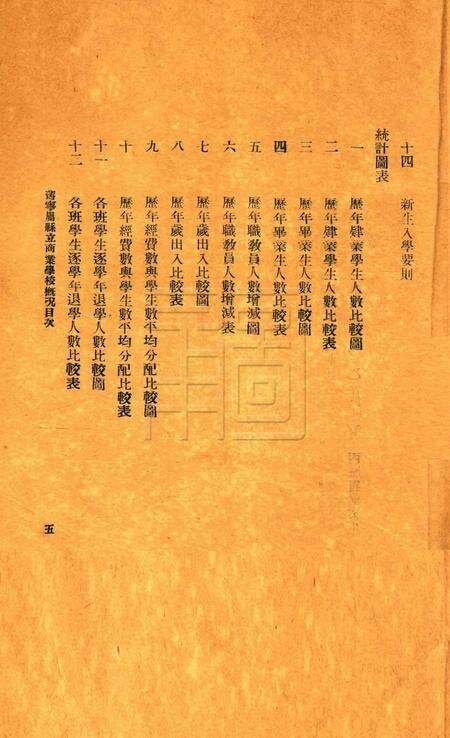 十四 新生入學要則
統計圖表
一 歷年肄業學生人數比較圖
二 歷年肄業學生人數比較表
三 歷年畢業生人數比較圖
四 歷年畢業生人數比較表
五 歷年職教員人數增減圖
六 歷年職教員人數增減表
七 歷年歲出入比較圖
八 歷年歲出入比較表
九 歷年經費數與學生數平均分配比較圖
十 歷年經費數與學生數平均分配比較表
十一 各班學生逐學年退學人數比較圖
十二 各班學生逐學年退學人數比較表
舊寧屬縣立商業學校概況目次
五